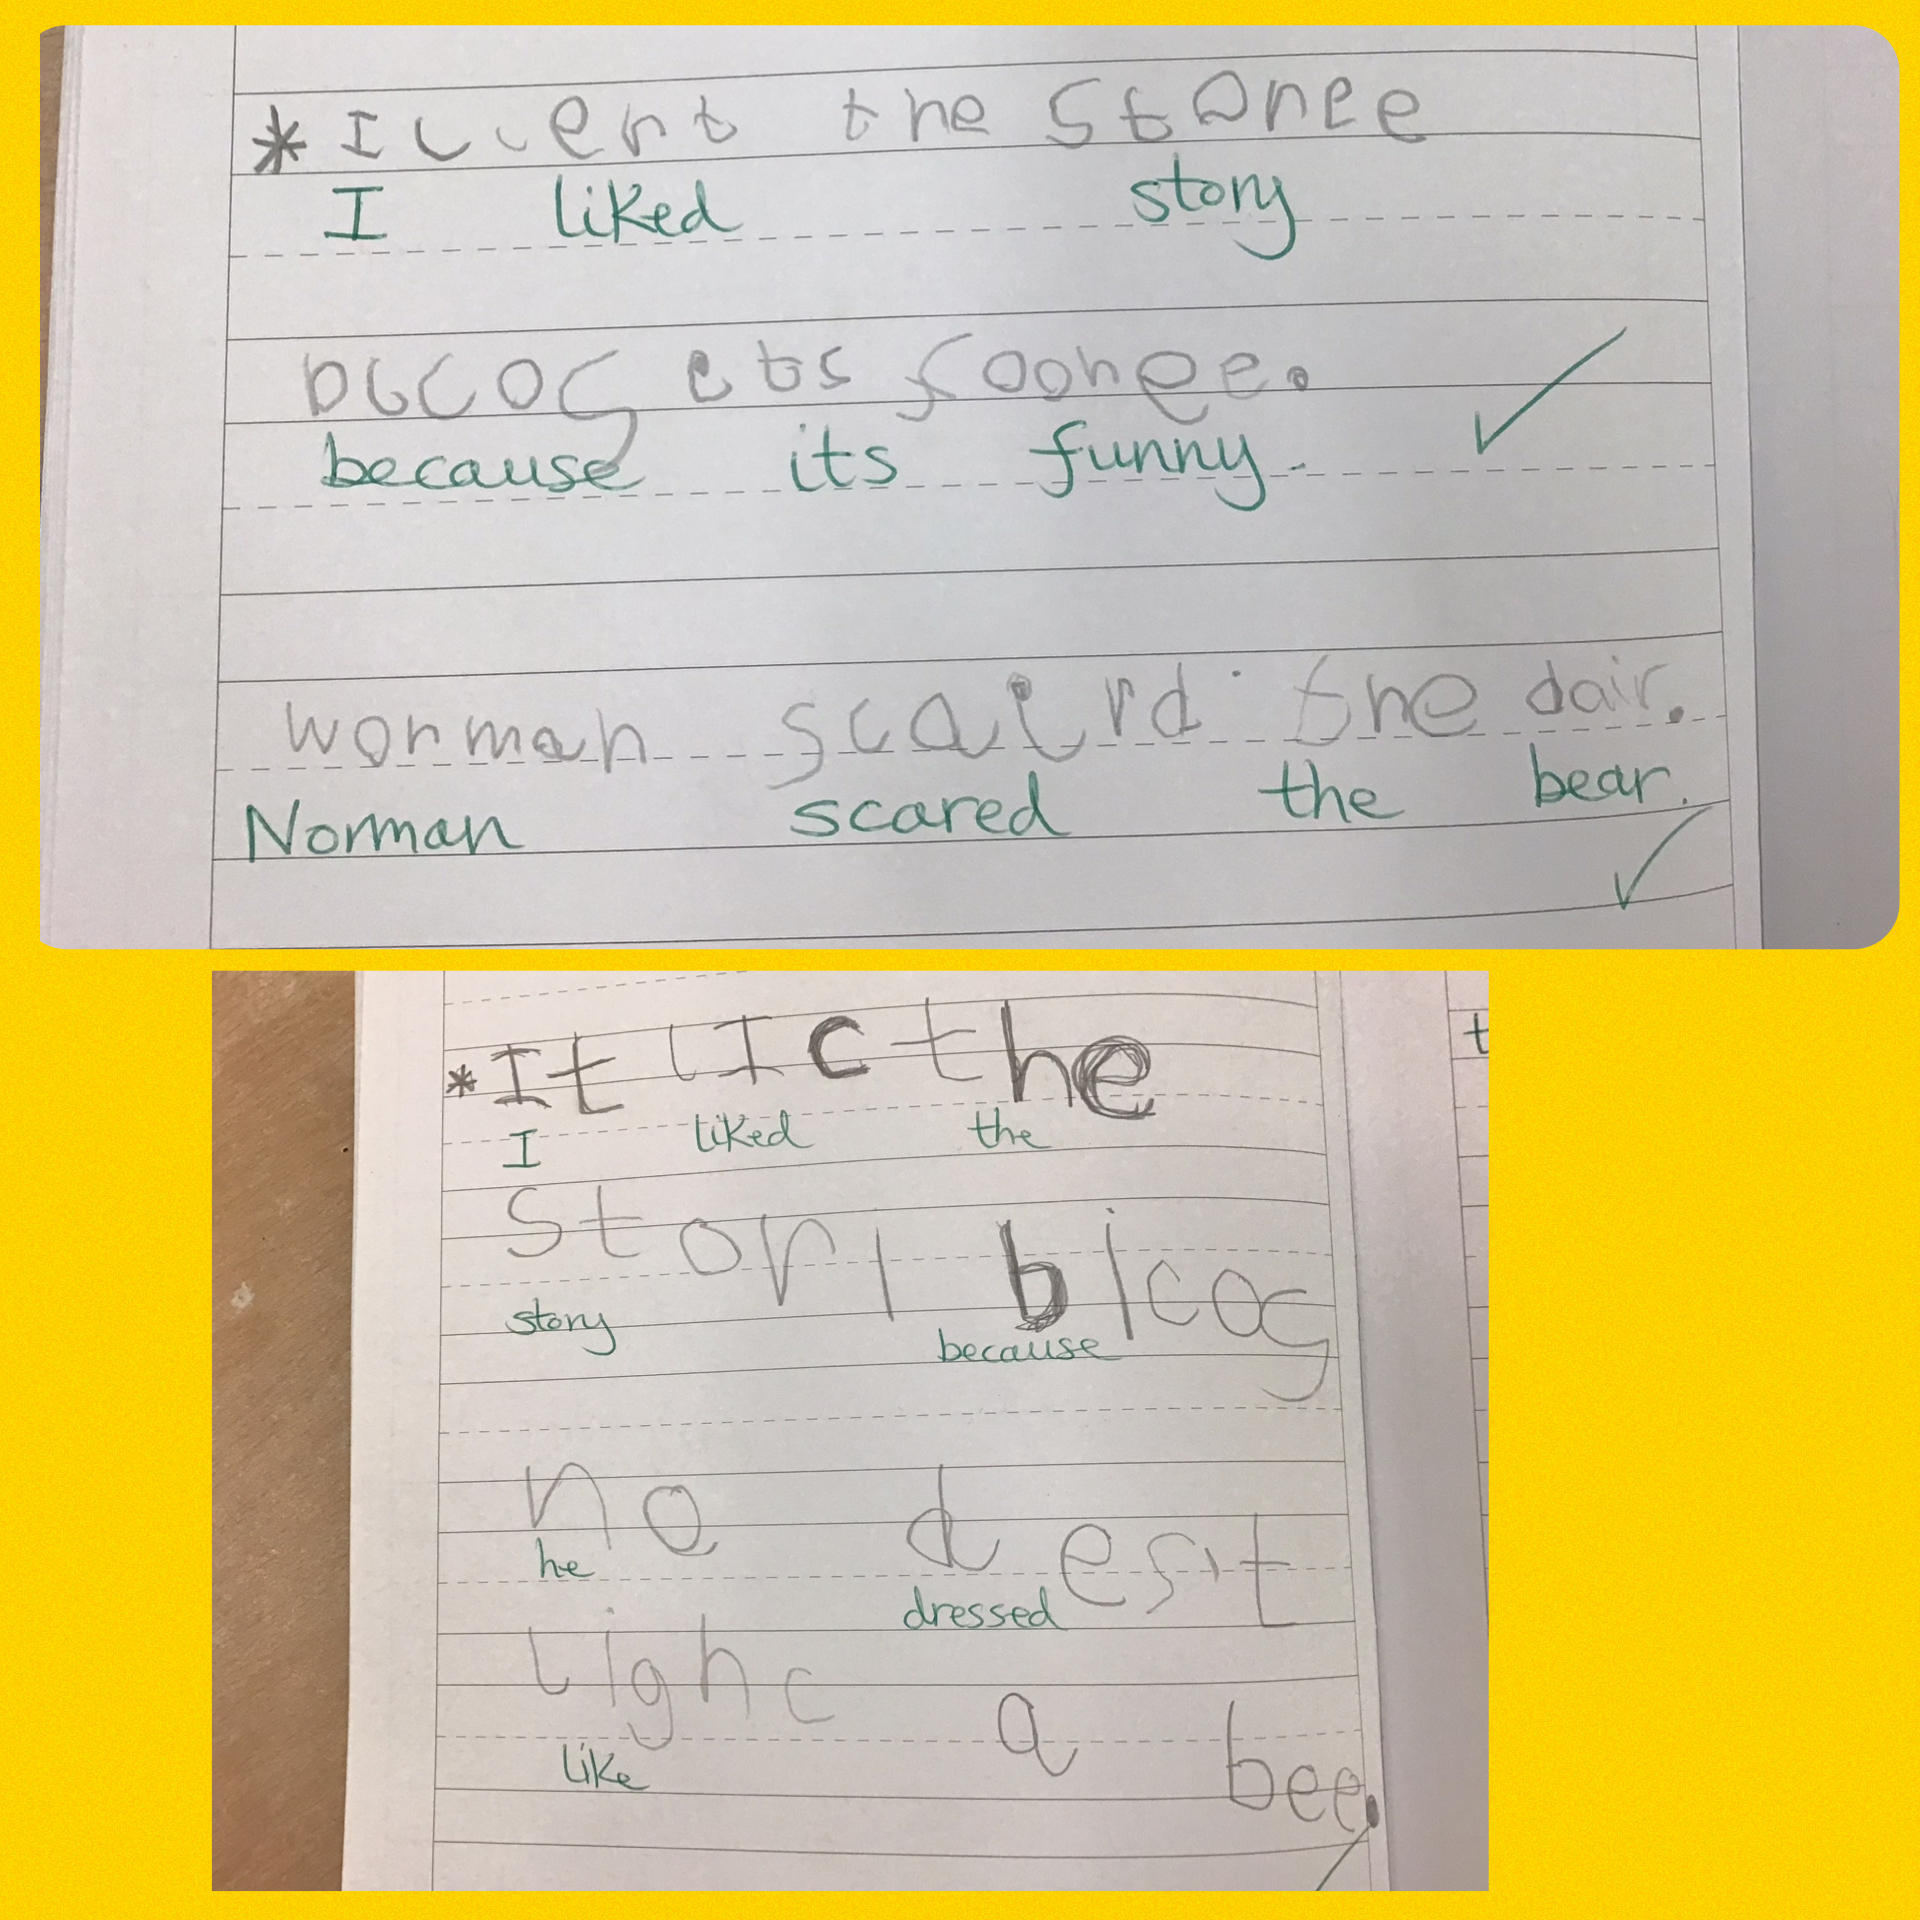 * I lient the stonee
I liked story
bccos ets foonee.
because its funny.
worman scaird the dair.
Norman scared the bear.
* It lIc the
I liked the
stori bicos
story because
he dest
he dressed
lighc a bee.
like
t